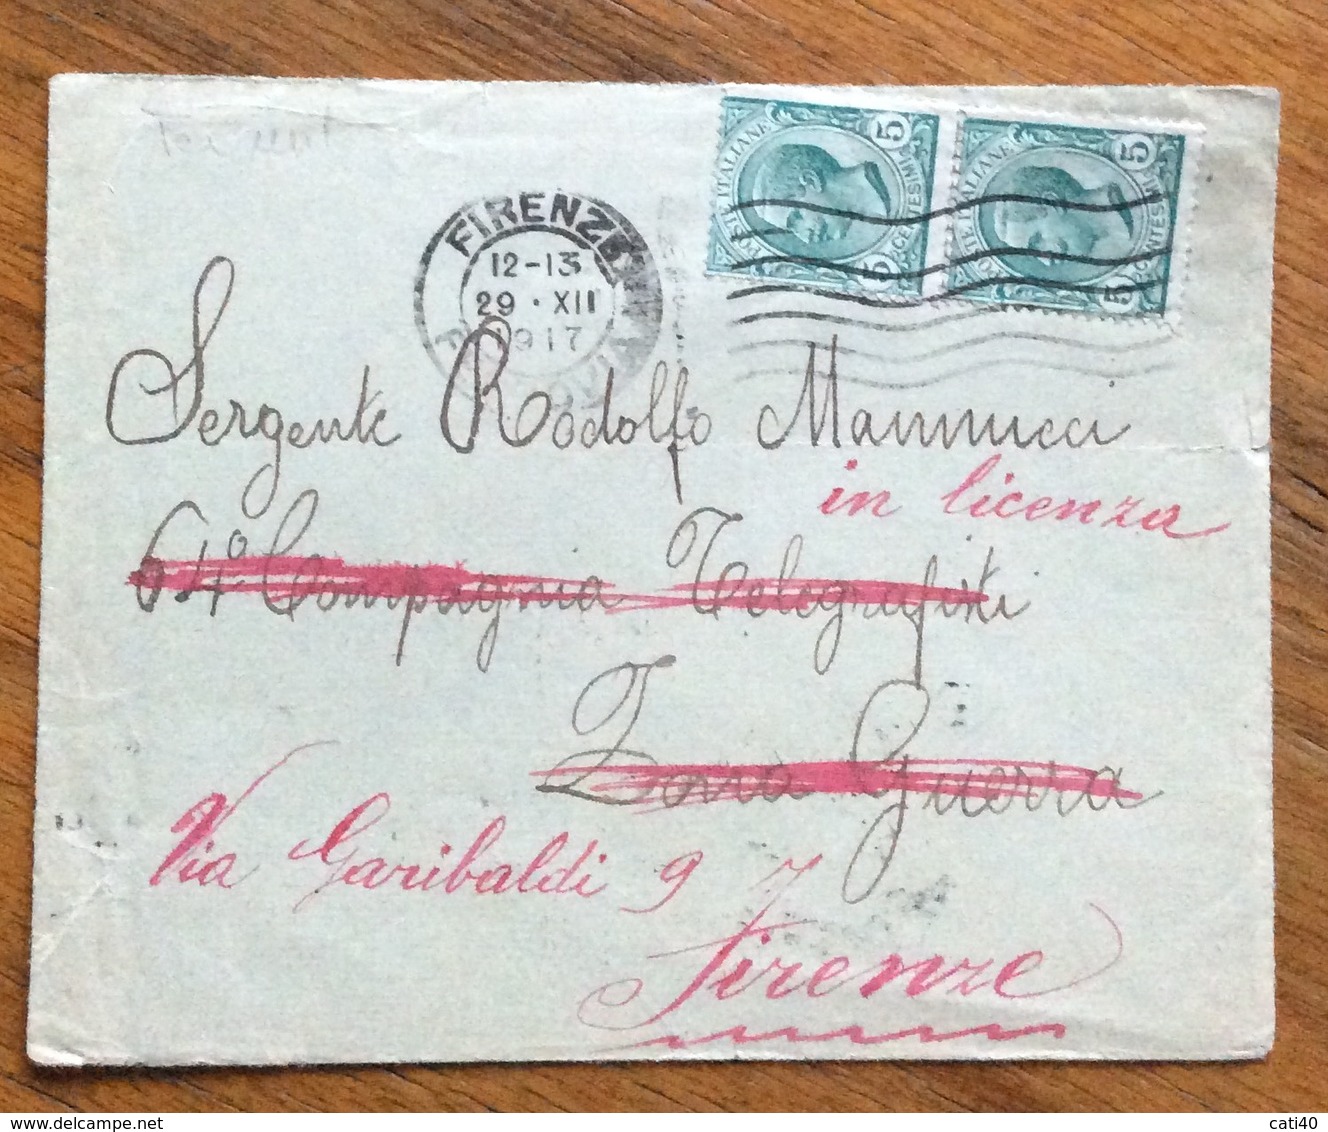 POSTE ITALIANE
5 CENTESIMI 5
POSTE ITALIANE
5 CENTESIMI 5
FIRENZE
12-13
29·XII
1917
Sergente Rodolfo Mannucci
in licenza
64ª Compagnia Telegrafisti
Zona Guerra
Via Garibaldi 9
Firenze
www.delcampe.net
cati40